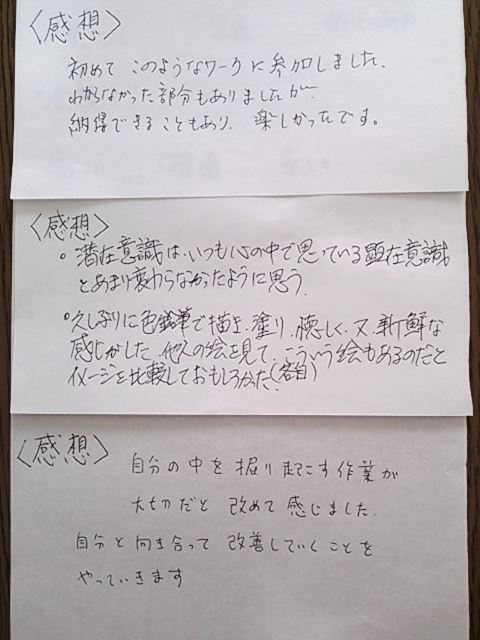 〈感想〉
初めて このようなワークに参加しました.
わからなかった部分もありましたが
納得できることもあり、楽しかったです。
〈感想〉
・潜在意識は、いつも心の中で思っている顕在意識
とあまり変わらなかったように思う.
・久しぶりに色鉛筆で描き、塗り、懐しく、又、新鮮な
感じがした、他人の絵を見て、こういう絵もあるのだと
イメージを比較しておもしろかった(各自)
〈感想〉
自分の中を掘り起こす作業が
大切だと 改めて感じました.
自分と向き合って改善していくことを
やっていきます